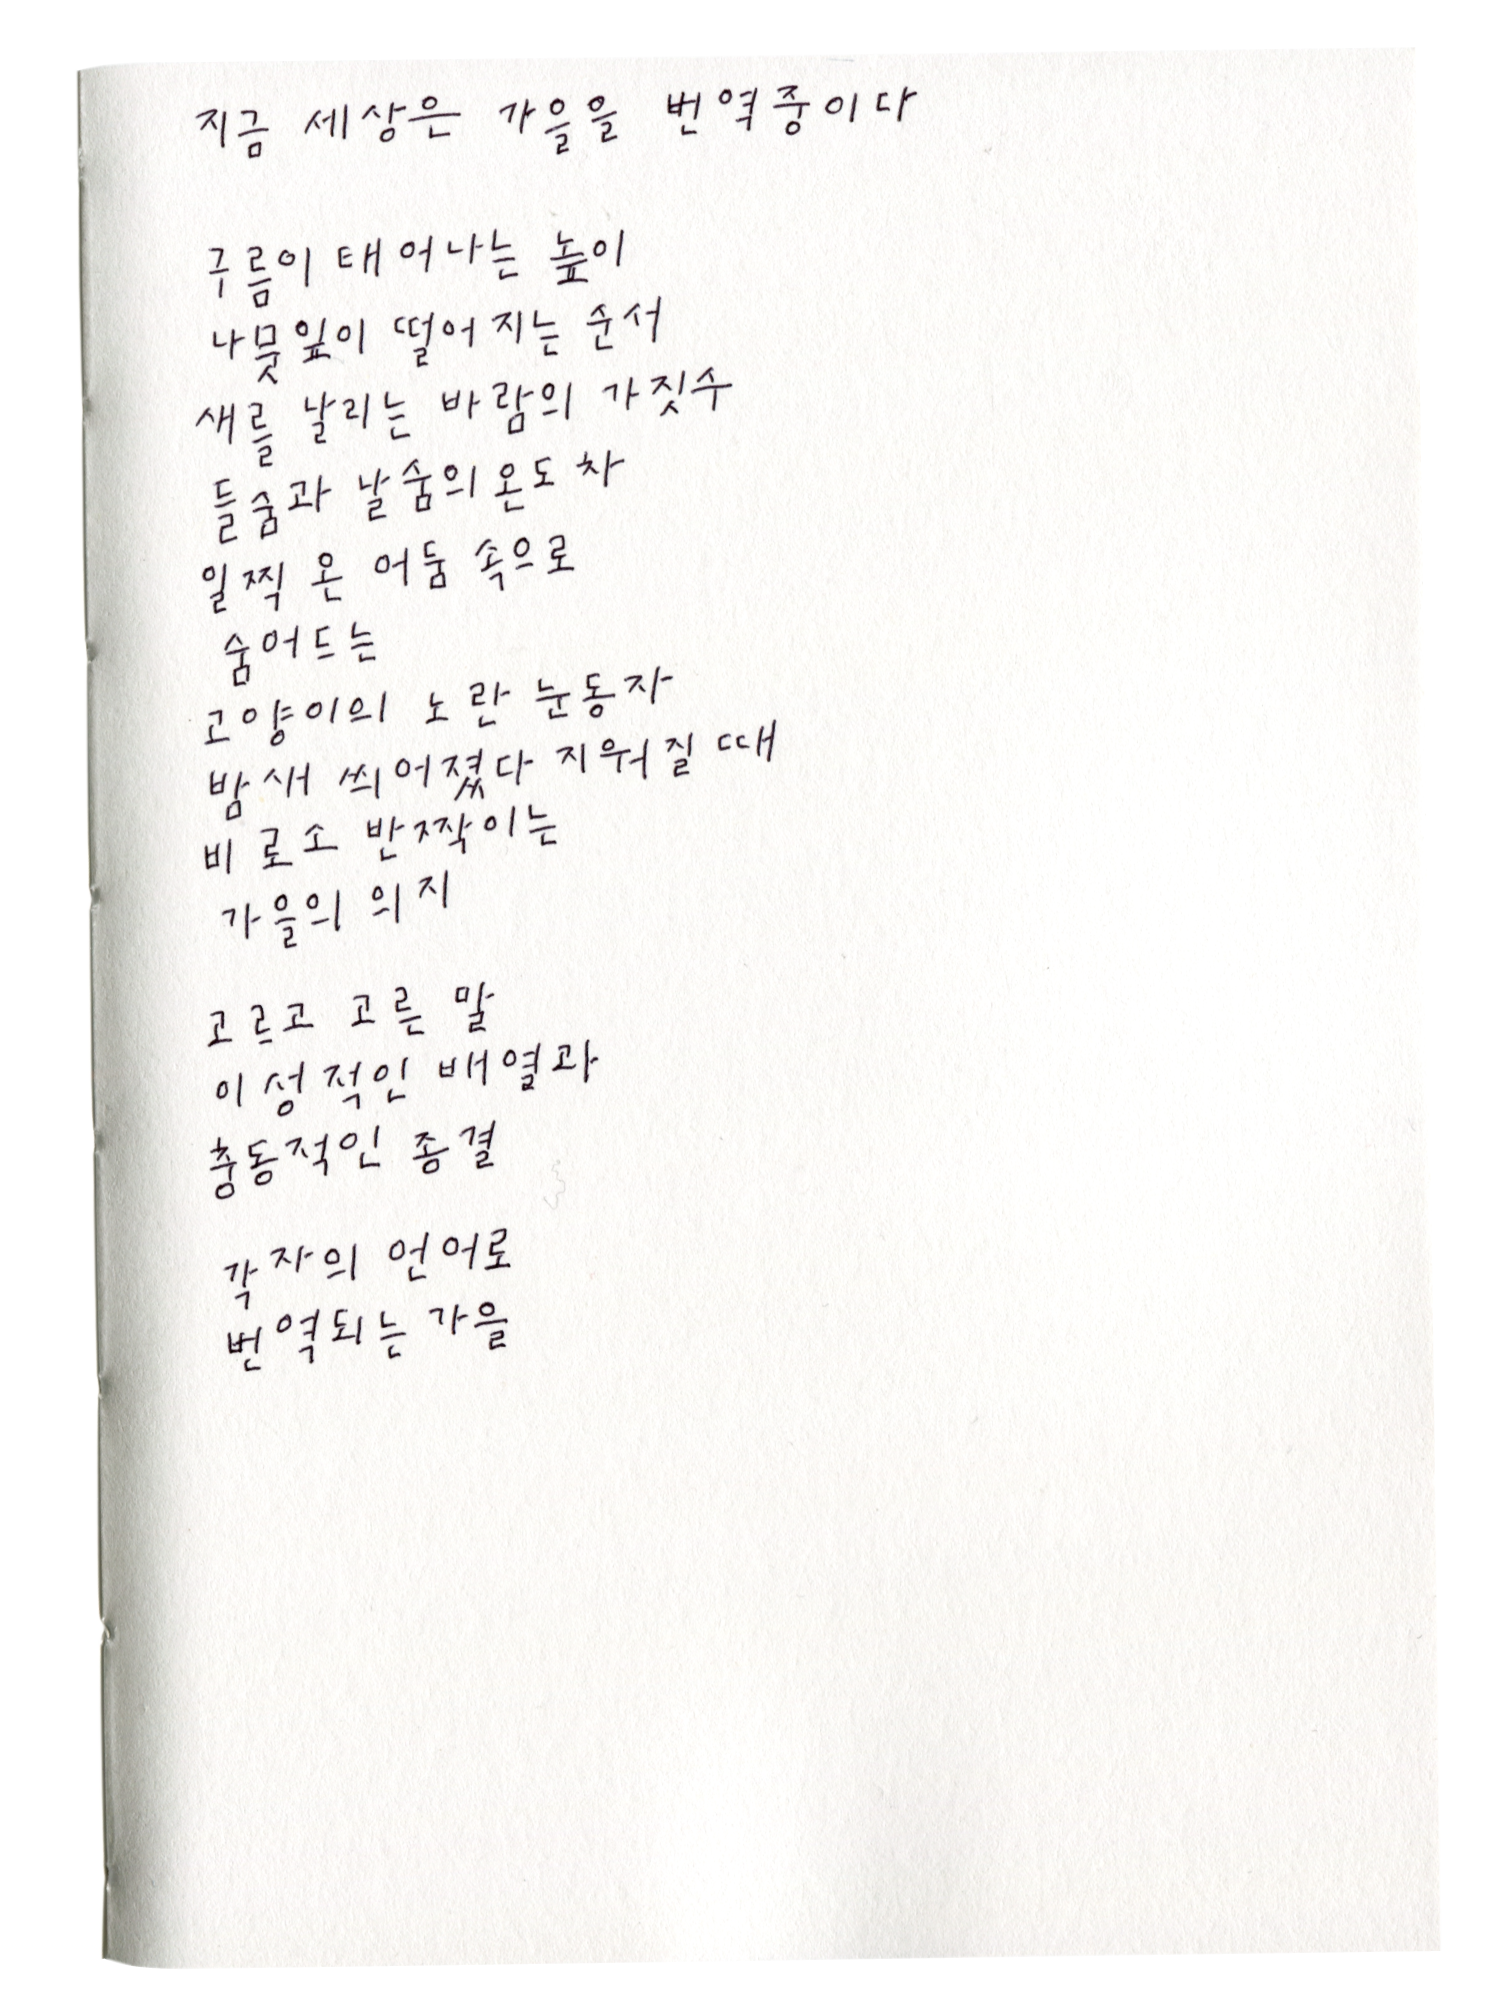 지금 세상은 가을을 번역중이다
구름이 태어나는 높이
나뭇잎이 떨어지는 순서
새를 날리는 바람의 가짓수
들숨과 날숨의 온도차
일찍 온 어둠 속으로
숨어드는
고양이의 노란 눈동자
밤새 씌어졌다 지워질 때
비로소 반짝이는
가을의 의지
고르고 고른 말
이성적인 배열과
충동적인 종결
각자의 언어로
번역되는 가을